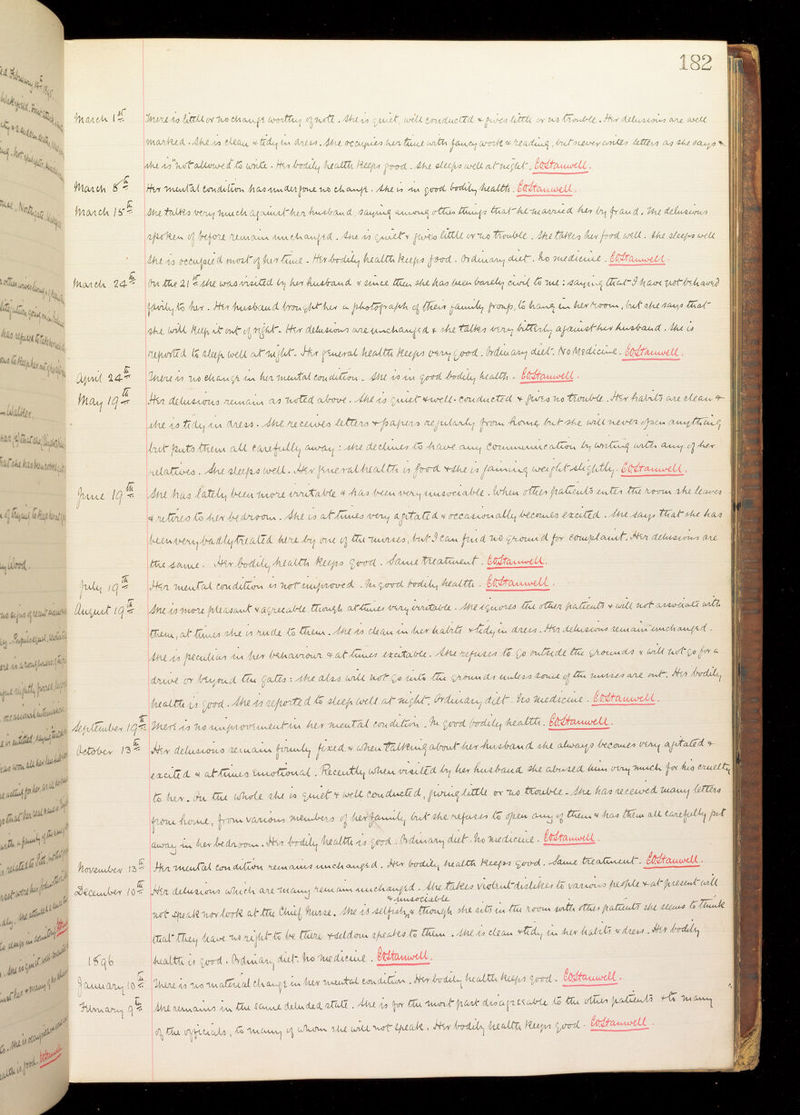 182
March 1st There is little or no change worthy of note. She is quiet, well conducted & gives little or no trouble. Her delusions are well
marked. She is clean & tidy in dress. She occupies her time with fancy work & reading, but never writes letters as she says
she is "not allowed to write. Her bodily health keeps good. She sleeps well at night. EoStanwell.
March 8th Her mental condition has undergone no change. She is in good bodily health. EoStanwell.
March 15th She talks very much against her husband, saying among other things that "he married her by fraud. The delusions
spoken of before remain unchanged. She is quiet & gives little or no trouble. She takes her food well. She sleeps well
She is occupied most of her time. Her bodily health keeps good. Ordinary diet. No medicine. EoStanwell.
March 24th On the 21st she was visited by her husband & since then she has been barely civil to me: saying that I have not behaved
fairly to her. Her husband brought her a photograph of their family group, to hang in her room, but she says that
she will keep it out of sight. Her delusions are unchanged & she talks very bitterly against her husband. She is
reported to sleep well at night. Her general health keeps very good. Ordinary diet. No Medicine. EoStanwell.
April 24th There is no change in her mental condition. She is in good bodily health. EoStanwell.
May 19th Her delusions remain as noted above. She is quiet & well-conducted & gives no trouble. Her habits are clean &
she is tidy in dress. She receives letters & papers regularly from home, but she will never open anything
but puts them all carefully away: she declines to have any communication by writing with any of her
relatives. She sleeps well. Her general health is good & she is gaining weight slightly. EoStanwell.
June 19th She has lately been more irritable & has been very unsociable. When other patients enter the room she leaves
& retires to her bedroom. She is at times very agitated & occasionally becomes excited. She says that she has
been very badly treated here by one of the nurses, but I can find no ground for complaint. Her delusions are
the same. Her bodily health keeps good. Same treatment. EoStanwell.
July 19th Her mental condition is not improved. In good bodily health. EoStanwell.
August 19th She is more pleasant & agreeable though at times very irritable. She ignores the other patients & will not associate with
them, at times she is rude to them. She is clean in her habits & tidy in dress. Her delusions remain unchanged.
She is peculiar in her behaviour & at times excitable. She refuses to go outside the grounds & will not go for a
drive or beyond the gates: she also will not go into the grounds unless some of the nurses are out. Her bodily
health is good. She is reported to sleep well at night. Ordinary diet. No medicine. EoStanwell.
September 19th There is no improvement in her mental condition. In good bodily health. EoStanwell.
October 13th Her delusions remain firmly fixed & when talking about her husband she always becomes very agitated &
excited & at times emotional. Recently when visited by her husband she abused him very much for his cruelty
to her. On the whole she is quiet & well conducted, giving little or no trouble. She has received many letters
from home, from various members of her family, but she refuses to open any of them & has them all carefully put
away in her bedroom. Her bodily health is good. Ordinary diet. No medicine. EoStanwell.
November 13th Her mental condition remains unchanged. Her bodily health keeps good. Same treatment. EoStanwell.
December 10th Her delusions which are many remain unchanged. She takes violent dislikes to various people & at present will
not speak nor look at the Chief Nurse. She is selfish, & unsociable & though she sits in the room with other patients she seems to think
that they have no right to be there & seldom speaks to them. She is clean & tidy in her habits & dress. Her bodily
1896 health is good. Ordinary diet. No medicine. EoStanwell.
January 10th There is no material change in her mental condition. Her bodily health keeps good. EoStanwell.
February 9th She remains in the same deluded state. She is for the most part disagreeable to the other patients & to many
of the officials, to many of whom she will not speak. Her bodily health keeps good. EoStanwell.